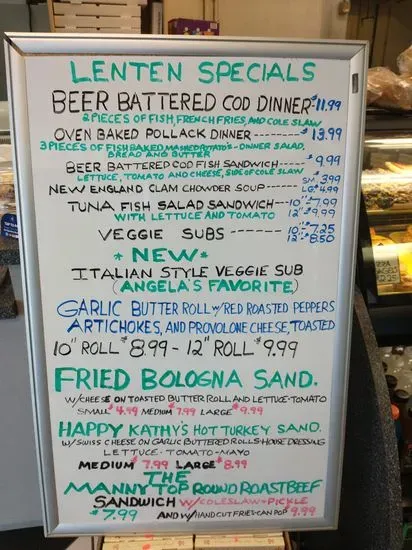 LENTEN SPECIALS
BEER BATTERED COD DINNER $11.99
2 PIECES OF FISH, FRENCH FRIES, AND COLE SLAW
OVEN BAKED POLLACK DINNER ------- $13.99
3 PIECES OF FISH BAKED MASHED POTATO'S - DINNER SALAD,
BREAD AND BUTTER
BEER BATTERED COD FISH SANDWICH ----- $9.99
LETTUCE, TOMATO AND CHEESE, SIDE OF COLE SLAW
NEW ENGLAND CLAM CHOWDER SOUP ------ SM $3.99
LG $4.99
TUNA FISH SALAD SANDWICH ---- 10" $7.99
WITH LETTUCE AND TOMATO 12" $9.99
VEGGIE SUBS ---------- 10" $7.25
12" $8.50
* NEW *
ITALIAN STYLE VEGGIE SUB
(ANGELA'S FAVORITE)
GARLIC BUTTER ROLL W/RED ROASTED PEPPERS
ARTICHOKES, AND PROVOLONE CHEESE, TOASTED
10" ROLL $8.99 - 12" ROLL $9.99
FRIED BOLOGNA SAND.
W/CHEESE ON TOASTED BUTTER ROLL AND LETTUCE-TOMATO
SMALL $4.99 MEDIUM $7.99 LARGE $9.99
HAPPY KATHY'S HOT TURKEY SAND.
W/SWISS CHEESE ON GARLIC BUTTERED ROLLS-HOUSE DRESSING
LETTUCE-TOMATO-MAYO
MEDIUM $7.99 LARGE $8.99
THE
MANNY TOP ROUND ROAST BEEF
SANDWICH W/COLESLAW-PICKLE
$7.99 AND W/HAND CUT FRIED-CAN POP $9.99